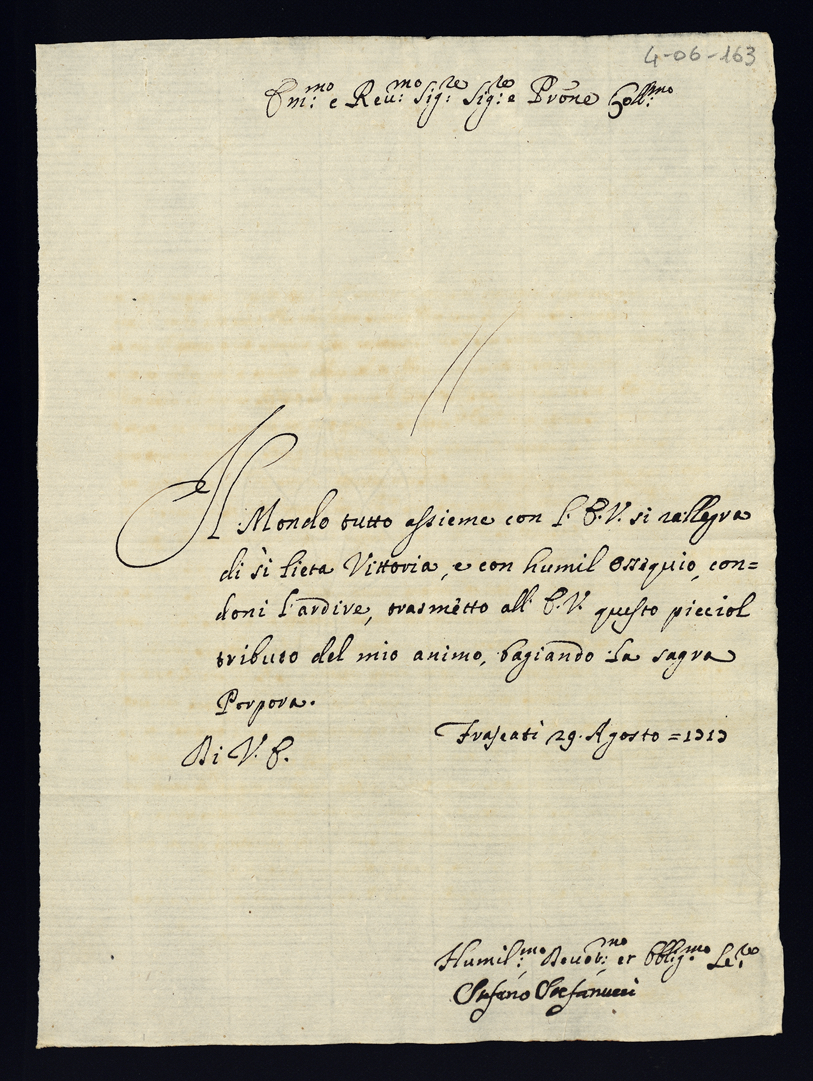 4-06-163
Em:mo e Reu:mo Sig:re Sig:re e Prone Coll:mo
Il Mondo tutto assieme con l'E.V. si rallegra
di sì lieta Vittoria, e con humil ossequio, con=
doni l'ardire, trasmetto all'E.V. questo picciol
tributo del mio animo, bagiando la sagra
Porpora.
Di V.E.
Frascati 29. Agosto =1717
Humil:mo Deuot:mo et Obblig:mo Se:re
Stefano Stefanucci